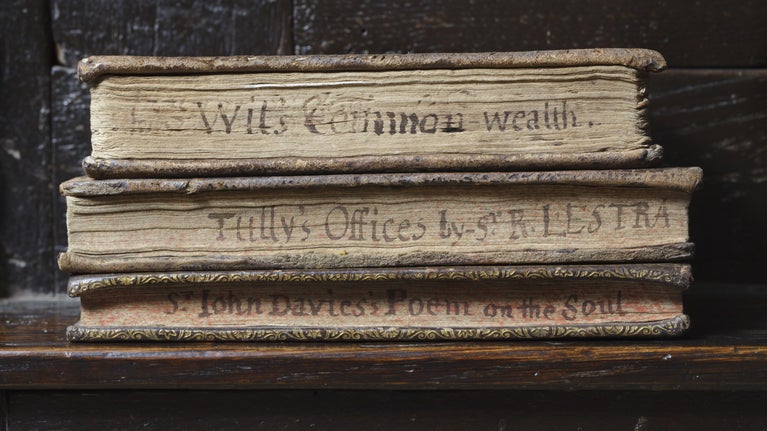 Wit's Common wealth.
Tully's Offices by Sr R. LESTRA
Sr John Davies's Poem on the Soul